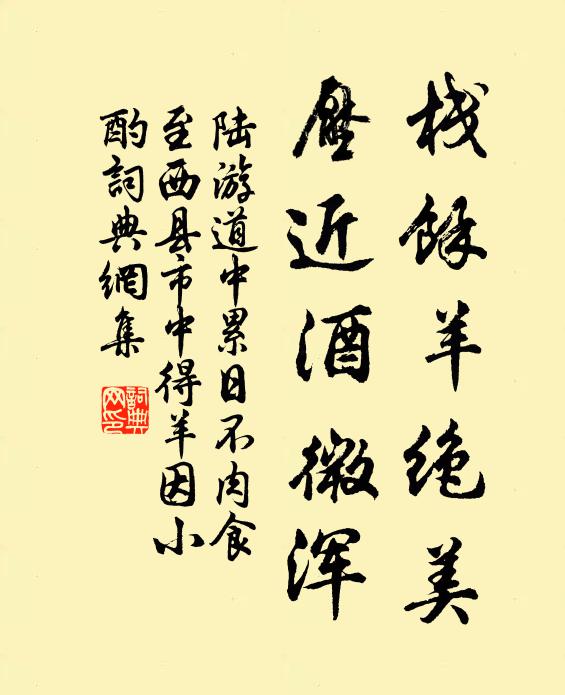 栈餘羊绝美
压近酒微浑
陆游道中累日不肉食
至西县市中得羊因小
酌詞典網集
詞典
网印